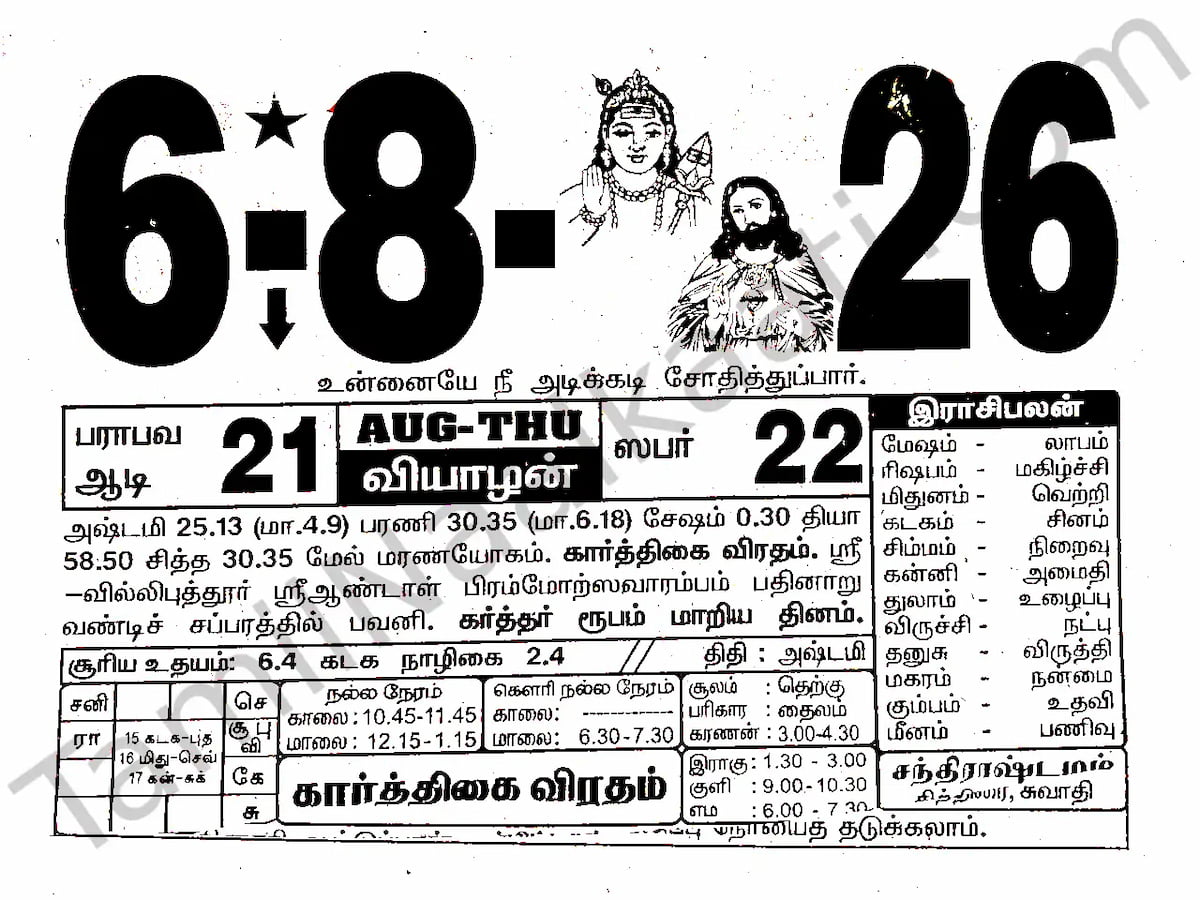 6-8-26
உன்னையே நீ அடிக்கடி சோதித்துப்பார்.
பராபவ
ஆடி
21
AUG-THU
வியாழன்
ஸபர்
22
அஷ்டமி 25.13 (மா.4.9) பரணி 30.35 (மா.6.18) சேஷம் 0.30 தியா
58:50 சித்த 30.35 மேல் மரணயோகம். கார்த்திகை விரதம். ஸ்ரீ
-வில்லிபுத்தூர் ஸ்ரீஆண்டாள் பிரம்மோற்ஸவாரம்பம் பதினாறு
வண்டிச் சப்பரத்தில் பவனி. கர்த்தர் ரூபம் மாறிய தினம்.
சூரிய உதயம்: 6.4 கடக நாழிகை 2.4 // திதி : அஷ்டமி
சனி
செ
ரா
சூ பு
வி
கே
சு
15 கடக-புத
16 மிது-செவ்
17 கன்-சுக்
நல்ல நேரம்
காலை : 10.45-11.45
மாலை : 12.15-1.15
கௌரி நல்ல நேரம்
காலை: -----------
மாலை: 6.30-7.30
கார்த்திகை விரதம்
சூலம் : தெற்கு
பரிகார : தைலம்
கரணன் : 3.00-4.30
இராகு : 1.30 - 3.00
குளி : 9.00-10.30
எம : 6.00 - 7.30
இராசிபலன்
மேஷம் - லாபம்
ரிஷபம் - மகிழ்ச்சி
மிதுனம் - வெற்றி
கடகம் - சினம்
சிம்மம் - நிறைவு
கன்னி - அமைதி
துலாம் - உழைப்பு
விருச்சி - நட்பு
தனுசு - விருத்தி
மகரம் - நன்மை
கும்பம் - உதவி
மீனம் - பணிவு
சந்திராஷ்டமம்
சித்திரை, சுவாதி
நோயைத் தடுக்கலாம்.
TamilNaalkaati.com